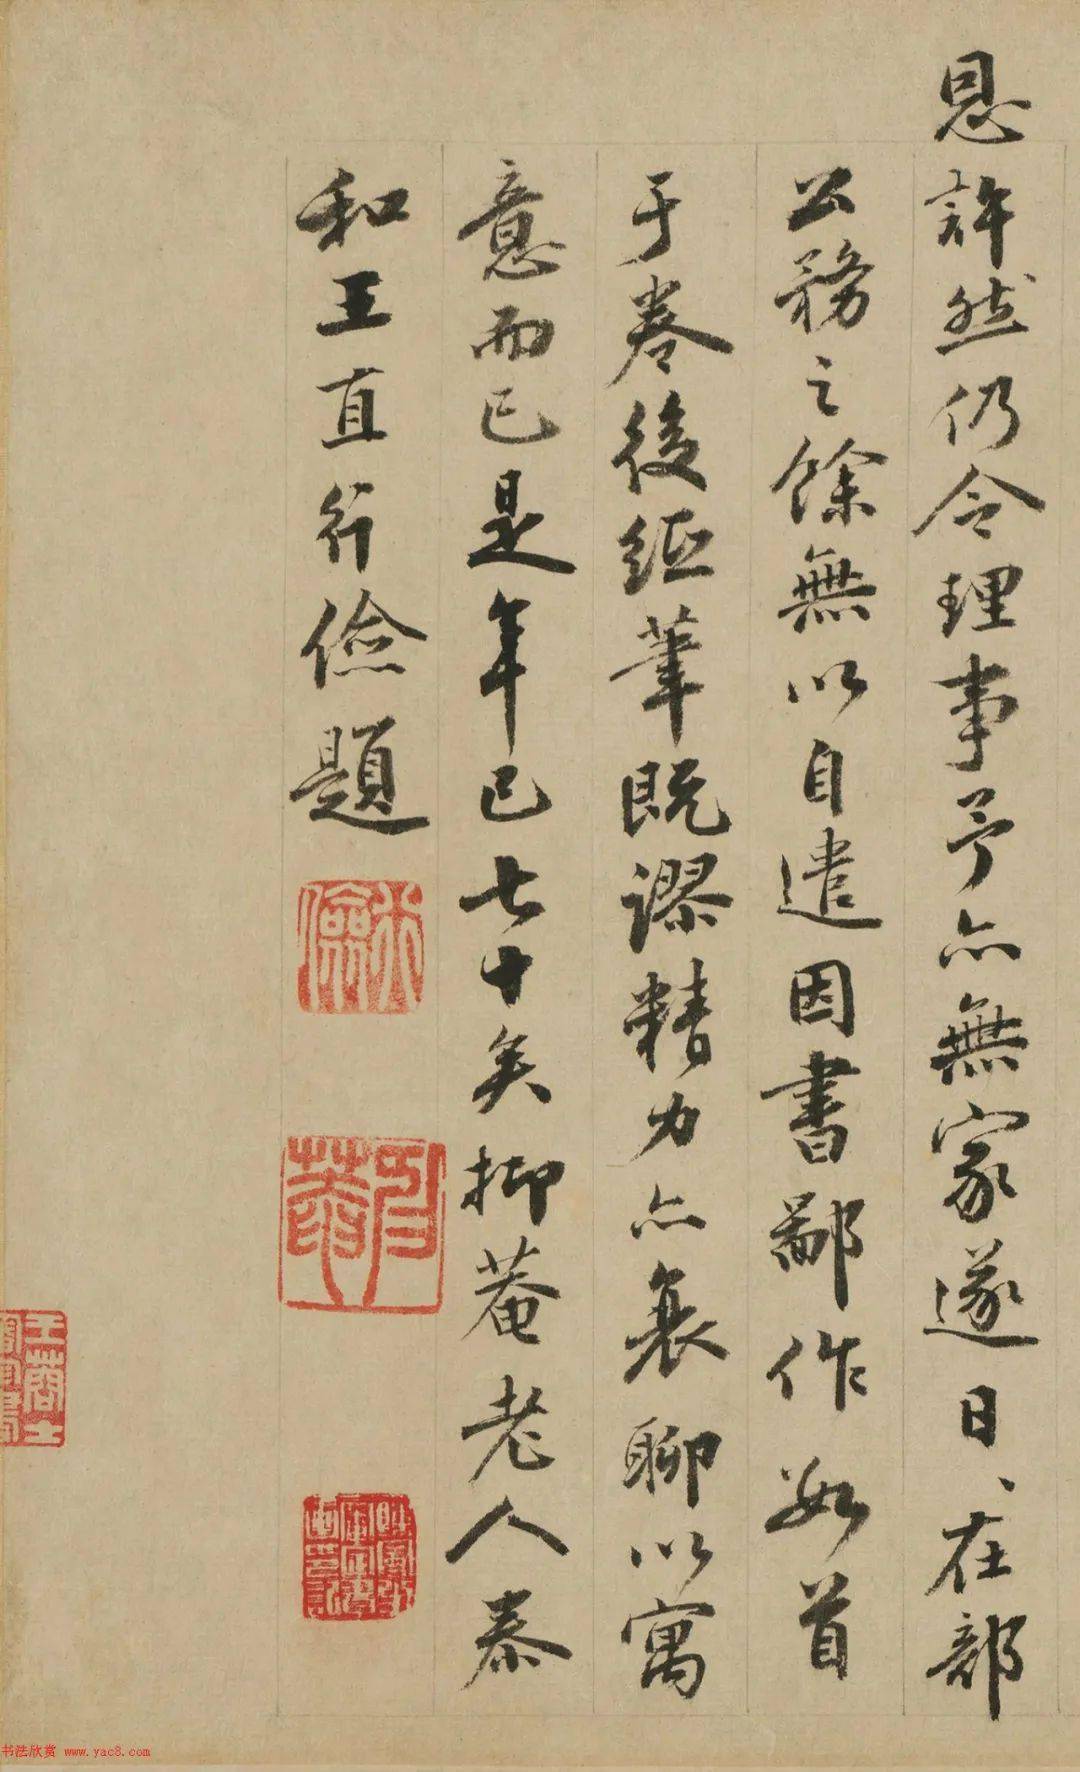 恩許然仍令理事予亦無家遂日、在部
公務之餘無以自遣因書鄙作數首
于卷後紙筆既謬精力亦衰聊以寓
意而已是年已七十矣抑菴老人泰
和王直行儉題
书法欣赏 www.yac8.com